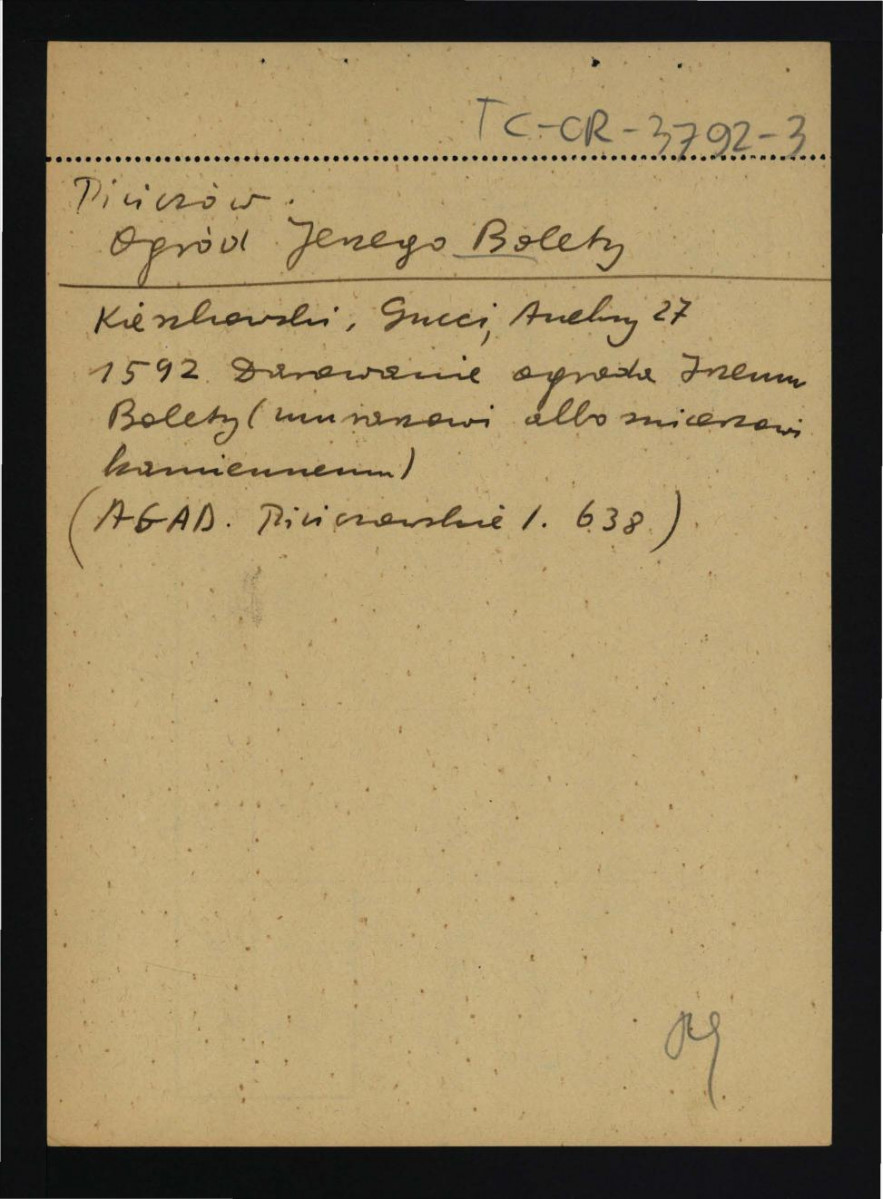 TC-CR-3792-3
Pińczów.
Ogród Jerzego Bolety
Kieszkowski, Gucci, Aneksy 27
1592 Darowanie ogroda Jrzemu
Bolety (murarzowi albo snicerzowi
kamiennemu)
(AGAD. Pińczowskie 1. 638)